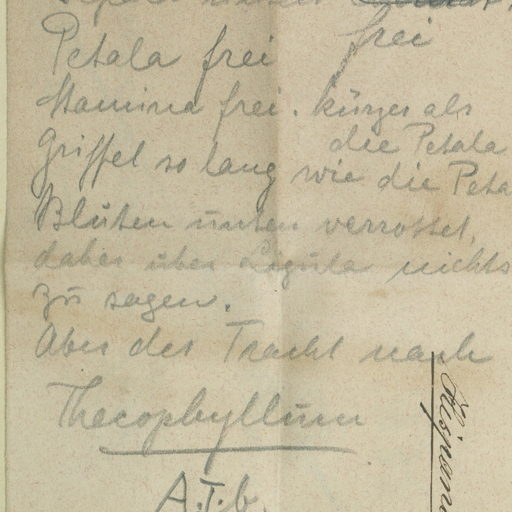 frei
Petala frei
Stamina frei. kürzer als
die Petala
Griffel so lang wie die Peta
Blüten unten verrottet,
daher über Ligula nichts
zu sagen.
Aber der Tracht nach
Thecophyllum